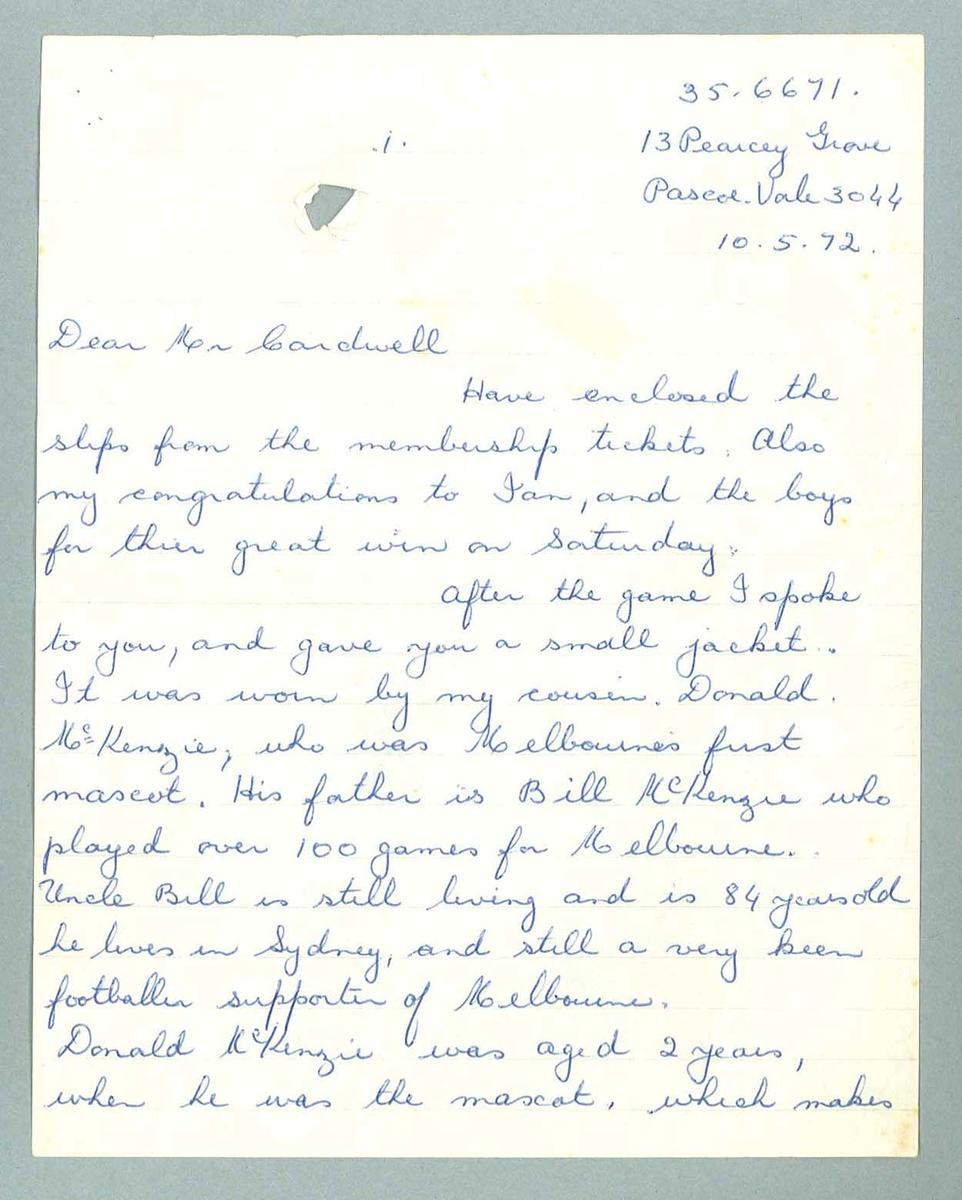 35.6671.
.1.
13 Pearcey Grove
Pascoe.Vale 3044
10.5.72.
Dear Mr Cardwell
Have enclosed the
slips from the membership tickets. Also
my congratulations to Ian, and the boys
for thier great win on Saturday.
After the game I spoke
to you, and gave you a small jacket..
It was worn by my cousin. Donald.
McKenzie, who was Melbournes first
mascot. His father is Bill McKenzie who
played over 100 games for Melbourne.
Uncle Bill is still living and is 84 years old
he lives in Sydney, and still a very keen
footballer supporter of Melbourne.
Donald McKenzie was aged 2 years,
when he was the mascot, which makes